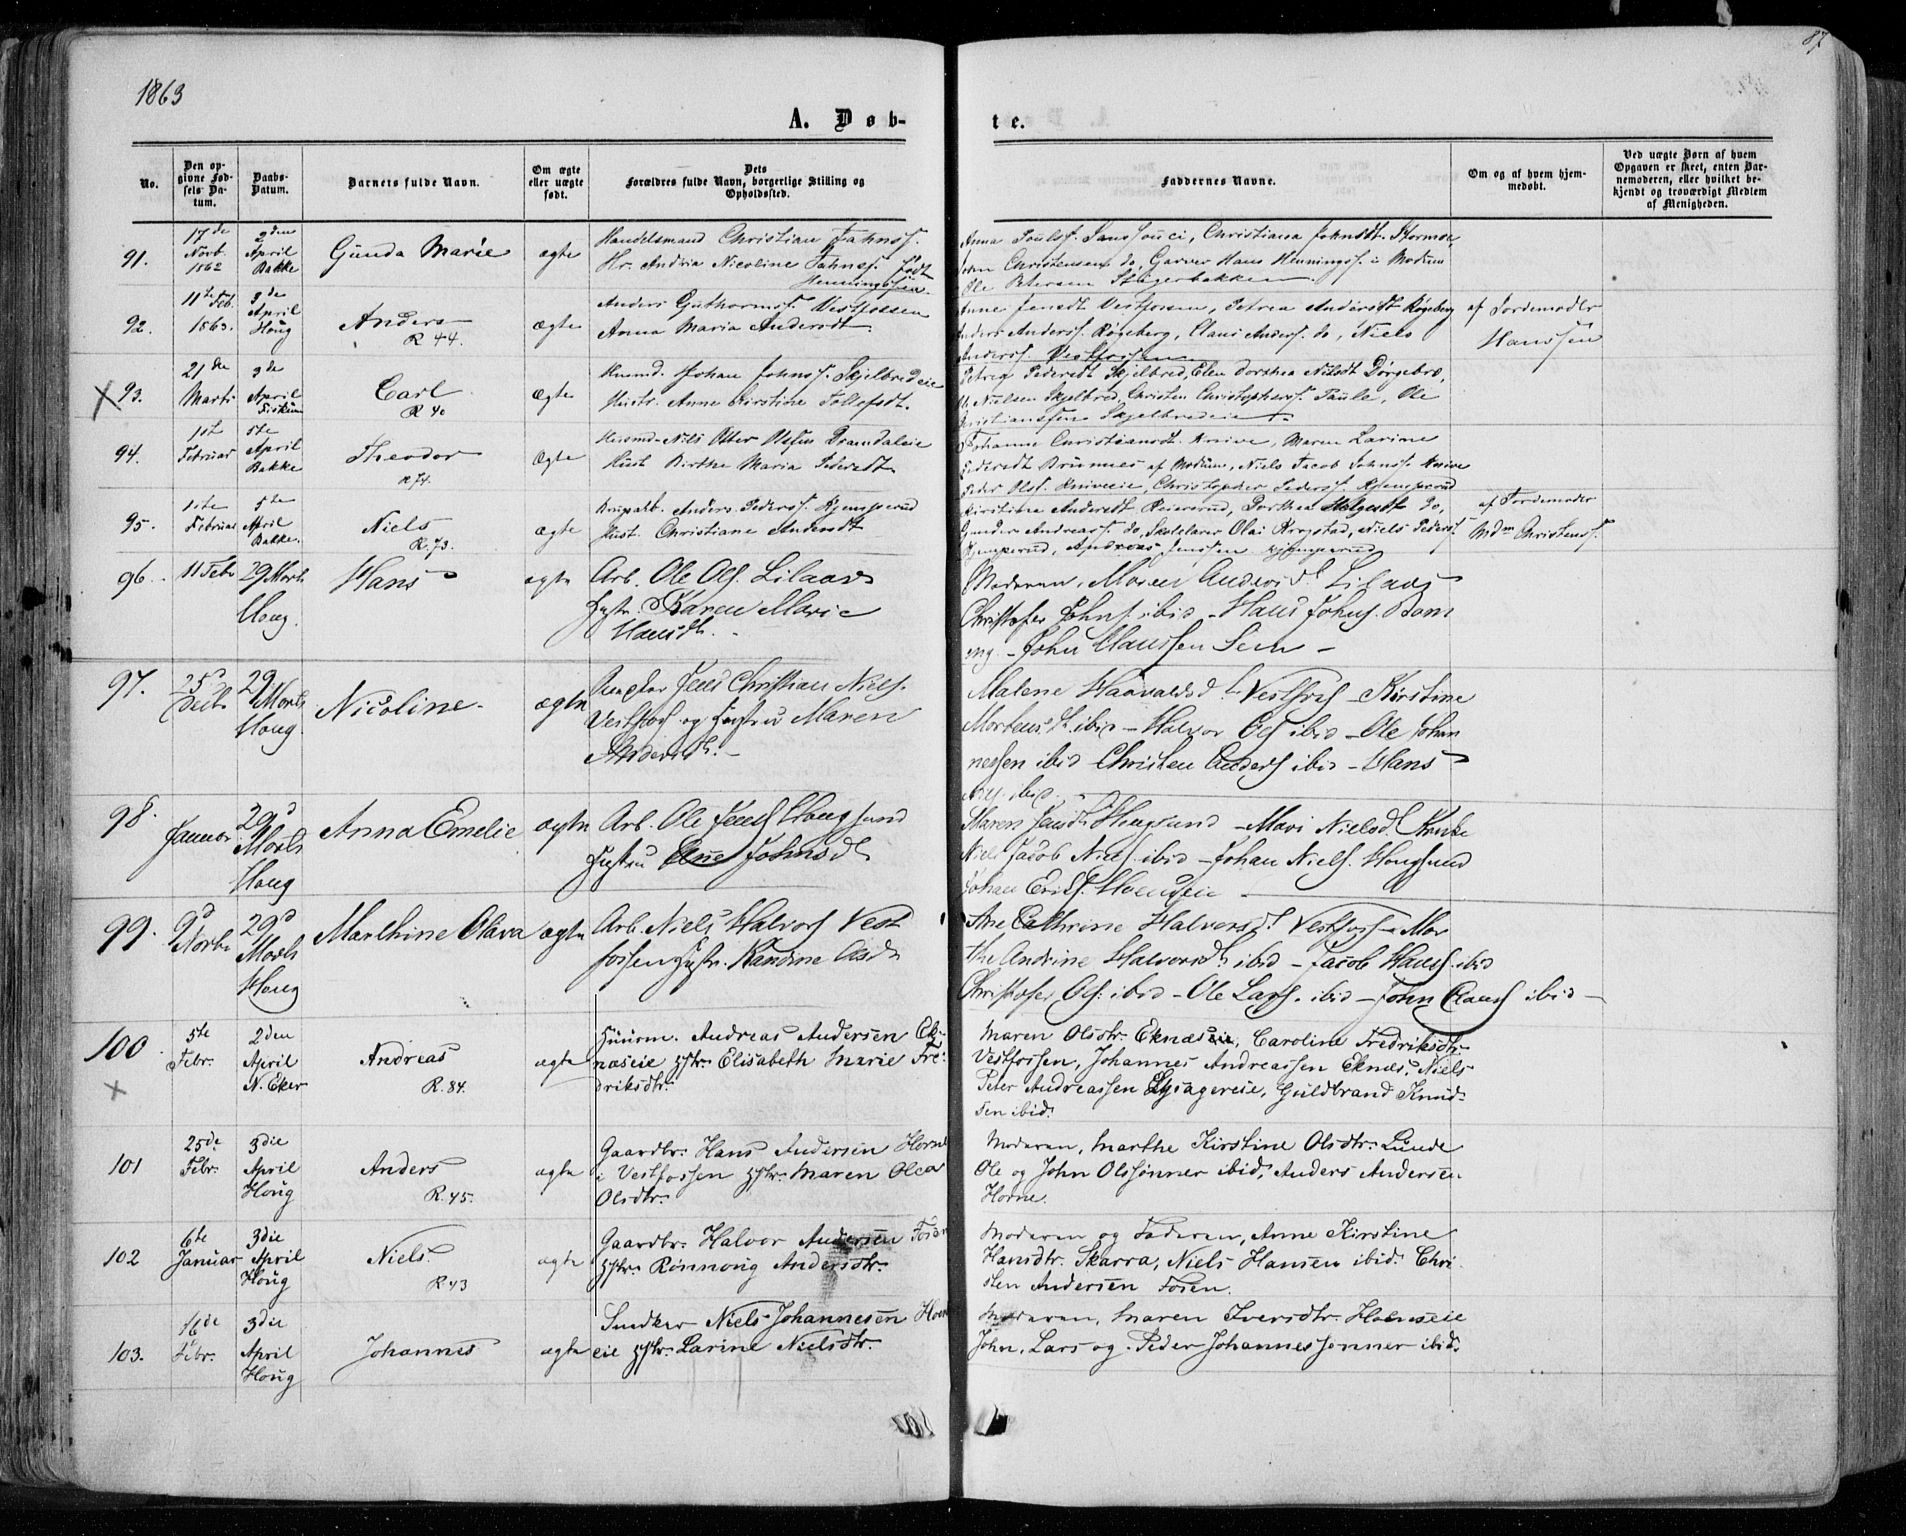 1863
87
A. Døb-
te.
No.
Den op-
givne Fød-
sels Da-
tum.
Daabs-
Datum.
Barnets fulde Navn.
Om ægte
eller uægte
født.
Dets
Forældres fulde Navn, borgerlige Stilling og
Opholdssted.
Faddernes Navne.
Om og af hvem hjem-
medøbt.
Ved uægte Børn af hvem
Opgaven er skeet, enten Bar-
nemoderen, eller hvilket be-
kjendt og troværdigt Medlem
af Menigheden.
91.
17de
Novb.
1862
2den
April
Bakke
Gunda Marie
ægte
Handelsmand Christian
Andrea Nicoline født
Henningsen
Anna Sanssouci, Christiana Johnsdt. Stormoe,
Christensen do, Garver Hans Hennings. i Modum
Ole Petersen Stegerbakken
92.
11te Feb.
1863.
3de
April
Houg
Anders
R 44.
Ægte
Anders Guthorms. Vestfossen
Anna Maria Andersdt.
Anne Jensdt Vestfossen, Petrea Andersdt Røgeberg
Anders Anderss. Røgeberg, Claus Anders. do, Niels
Anderss. Vestfossen
af Jordemoder
Hanssen
93.
21de
Marts
3de
April
Fiskum
Carl
R 40
Ægte
Huusmd. Johan Johns. Skjelbredeie
Hustr. Anne Kirstine Tollefsdt.
Petrea Pedersdt Skjelbred, Elen Dorthea Nilsdt Dørgebro,
Nielsen Skjelbred, Christen Christophers. Paule, Ole
Christianssen Skjelbredeie
94.
1ste
Februar
5te
April
Bakke
Theodor
R 74.
Ægte
Huusmd. Nils Otter Olssen
Hust. Birthe Maria Pedersdt.
Johanne Christiansdt. Knive, Maren Larine
Pedersdt Brunnes af Modum, Niels Jacob Johns. Knive
Peder Ols. Kniveeie, Christopher Peders. Kjemperud
95.
1ste
Februar
5te
April
Bakke.
Niels
R. 73.
ægte
Anders Peders. Kjemperud
Hust. Christiane Andersdt
Kirstine Andersdt, Dorthea Helgesdt do,
Gunder Andreass. do, Skolelærer Olai Krogstad, Niels Peders.
Kjemperud, Andreas Jenssen Kjemperud
af Jordemoder
Mdm Christens.
96.
11 Febr
29 Marts
Houg.
Hans
ægte
Arb. Ole Ols. Lilaas
Hustr. Karen Marie
Hansdt.
Moderen, Maren Andersd. Lilaas
Christofer Johns. ibid – Hans Johns. Bom
eng – John Claussen Sem –
97.
25
29
Marts
Houg.
Nicoline
ægte
Jens Christian Niels.
Vestfos og Hustru Maren
Andersdt. –
Malene Haavaldsdt. Vestfos – Kirstine
Mortensdt. ibid – Halvor Ols ibid – Ole Johan
nessen ibid Christen Anders ibid – Hans
Niels. ibid.
98.
Januar
29
Marts
Houg
Anna Emelie
ægte
Arb. Ole Jens Hougsund
Hustru Ane Johnsdt
Maren Jensdt. Hougsund – Mari Nielsd. Kruke
Niels Jacob Niels. ibid – Johan Niels. Hougsund
Johan Eriks.
99.
9d
Novbr
29d
Marts
Houg
Marthine Olava
ægte
Arb. Niels Halvors Vest
fossen Hustr. Randine Olsdt
Ane Cathrine Halvorsdt. Vestfos – Mar
the Andrine Halvorsdt. ibid – Jacob Hans. ibid
Christofer Ols: ibid – Ole Lars. ibid – John Claus ibid –
100
5te
Febr.
2den
April
N. Eker
Andreas
R. 84.
ægte
Huusm. Andreas Andersen Ek-
næseie Hstr. Elisabeth Marie Fre-
driksdtr.
Maren Olsdtr. Eknæseie, Caroline Fredriksdtr.
Vestfossen, Johannes Andreassen Eknæs, Niels
Peter Andreassen, Guldbrand Knud-
sen ibid.
101
25de
Febr.
3die
April
Houg
Anders
R. 45.
ægte
Gaardbr. Hans Andersen Horne
i Vestfossen Hstr. Maren Olea
Olsdtr.
Moderen, Marthe Kirstine Olsdtr. Lunde
Ole og John Olssønner ibid, Anders Andersen
Horne.
102
6te
Januar
3die
April
Houg
Niels.
R. 43
ægte
Gaardbr. Halvor Andersen Fosen
Hstr. Rønnoug Andersdtr.
Moderen og Faderen, Anne Kirstine
Hansdtr. Skarra, Niels Hansen ibid. Chri-
sten Andersen Fosen.
103.
16de
Febr.
3die
April
Houg
Johannes
ægte
Snedker Niels Johannesen
eie Hstr. Larine Nielsdtr.
Moderen, Maren Iversdtr. Hoenseie
John, Lars og Peder Johannessønner ibid.